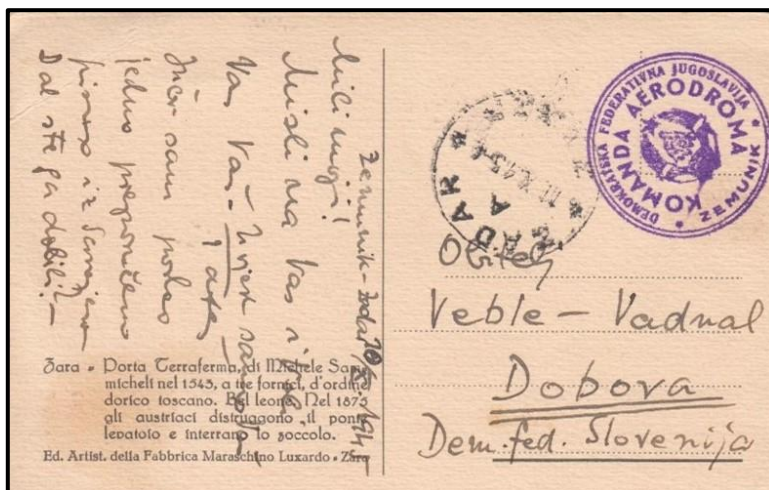 Zemunik-Zadar 10/X 1945
Mići moji!
Misli na Vas i
Vas Vaš-
tata
Jučer sam poslao
jedno preporučeno
pismo iz Sarajeva
Dal ste ga dobili?-
Zara • Porta Terraferma, di Michele San-
micheli nel 1543, a tre fornici, d'ordine
dorico toscano. Bel leone. Nel 1875
gli austriaci distruggono il ponte
levatoio e interrano lo zoccolo.
Ed. Artist. della Fabbrica Maraschino Luxardo • Zara
ZADAR
ZARA
DEMOKRATSKA FEDERATIVNA JUGOSLAVIJA
KOMANDA AERODROMA
* ZEMUNIK *
Obitelj
Veble - Vadnal
Dobova
Dem. fed. Slovenija